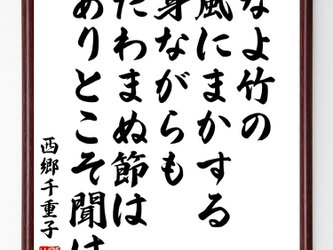 なよ竹の
風にまかする
身ながらも
たわまぬ節は
ありとこそ聞け
西郷千重子